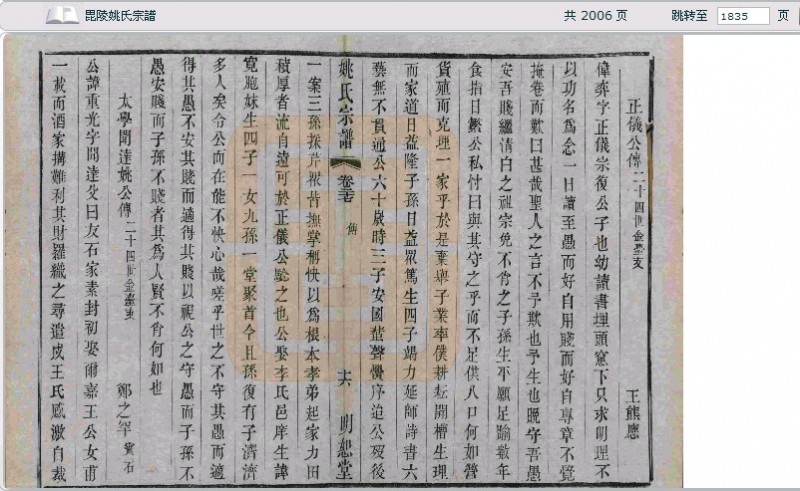 毘陵姚氏宗譜
共 2006 页
跳转至 1835 页
正儀公傳二十四世金臺支 王熊應
偉弈字正儀宗復公子也幼讀書埋頭窻下只求明理不
以功名爲念一日讀至愚而好自用賤而好自專章不覺
掩卷而歎曰甚哉聖人之言不予欺也予生也晚守吾愚
安吾賤繼清白之祖宗免不肖之子孫生平願足踰數年
食指日繁公私忖曰與其守之乎而不足供八口何如營
貨殖而克理一家乎於是棄舉子業率僕耕耘開槽生理
而家道日益隆子孫日益眾篤生四子竭力延師詩書六
藝無不貫通公六十歲時三子安國蜚聲黌序迨公歿後
姚氏宗譜 卷 傳 六 明恕堂
一案三孫採芹 皆撫掌稱快以爲根本孝弟起家力田
積厚者流自遠可於正儀公驗之也公娶李氏邑庠生諱
寬胞妹生四子一女九孫一堂聚首今且孫復有子濟濟
多人矣令公而在能不快心哉嗟乎世之不守其愚而適
得其愚不安其賤而適得其賤以視公之守愚而子孫不
愚安賤而子孫不賤者其爲人賢不肖何如也
太學聞達姚公傳二十四世金臺支 鄭之罕賓石
公諱重光字聞達父曰友石家素封初娶爾嘉王公女甫
一載而酒家搆難利其財羅織之尋遣戍王氏感激自裁